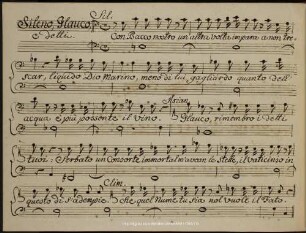 Sileno, Glauco, Sil.
e detti. Con Bacco nostro un'altra volta impara a non tre=
scar, liquido Dio Marino, meno di lui gagliardo quanto dell'
acqua è più possente il vino. Glauco, rimembro i detti
tuoi: Serbato un Consorte immortal m'avean le stelle, il vaticinio in
Clim.
questo dì s'adempie Che quel Nume tu sia nol vuole il Fato.